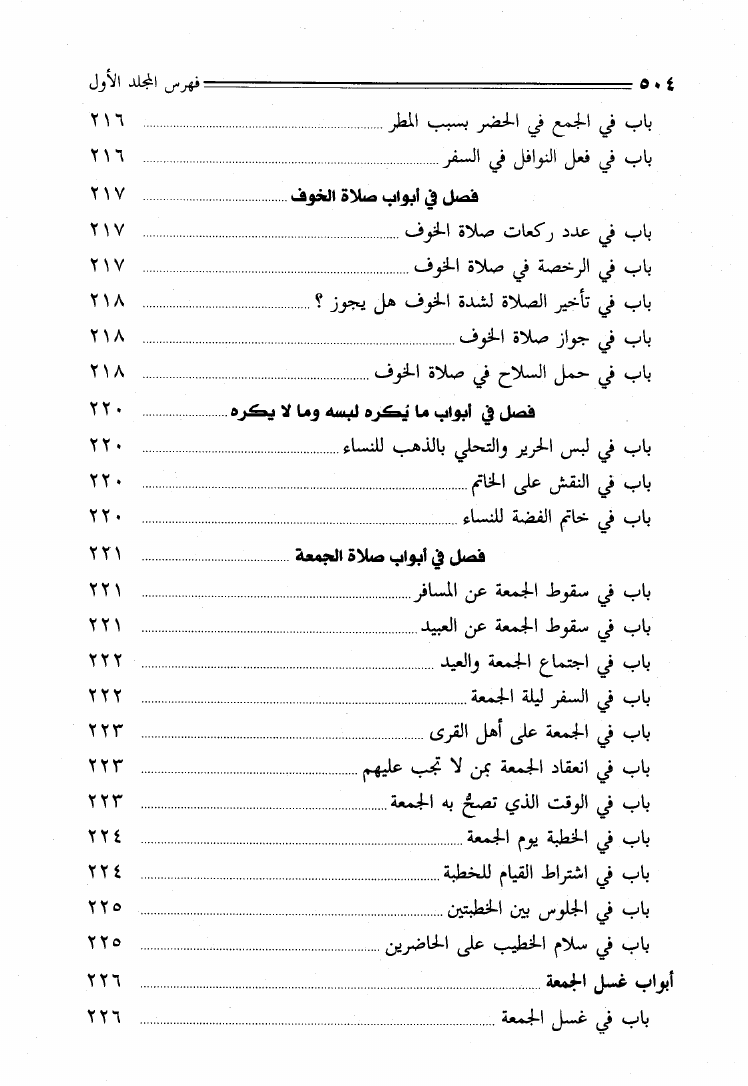 ٥٠٤ فهرس المجلد الأول
باب في الجمع في الحضر بسبب المطر ٢١٦
باب في فعل النوافل في السفر ٢١٦
فصل في أبواب صلاة الخوف ٢١٧
باب في عدد ركعات صلاة الخوف ٢١٧
باب في الرخصة في صلاة الخوف ٢١٧
باب في تأخير الصلاة لشدة الخوف هل يجوز ؟ ٢١٨
باب في جواز صلاة الخوف ٢١٨
باب في حمل السلاح في صلاة الخوف ٢١٨
فصل في أبواب ما يُكره لبسه وما لا يكره ٢٢٠
باب في لبس الحرير والتحلي بالذهب للنساء ٢٢٠
باب في النقش على الخاتم ٢٢٠
باب في خاتم الفضة للنساء ٢٢٠
فصل في أبواب صلاة الجمعة ٢٢١
باب في سقوط الجمعة عن المسافر ٢٢١
باب في سقوط الجمعة عن العبيد ٢٢١
باب في اجتماع الجمعة والعيد ٢٢٢
باب في السفر ليلة الجمعة ٢٢٢
باب في الجمعة على أهل القرى ٢٢٣
باب في انعقاد الجمعة بمن لا تجب عليهم ٢٢٣
باب في الوقت الذي تصحُّ به الجمعة ٢٢٣
باب في الخطبة يوم الجمعة ٢٢٤
باب في اشتراط القيام للخطبة ٢٢٤
باب في الجلوس بين الخطبتين ٢٢٥
باب في سلام الخطيب على الحاضرين ٢٢٥
أبواب غسل الجمعة ٢٢٦
باب في غسل الجمعة ٢٢٦